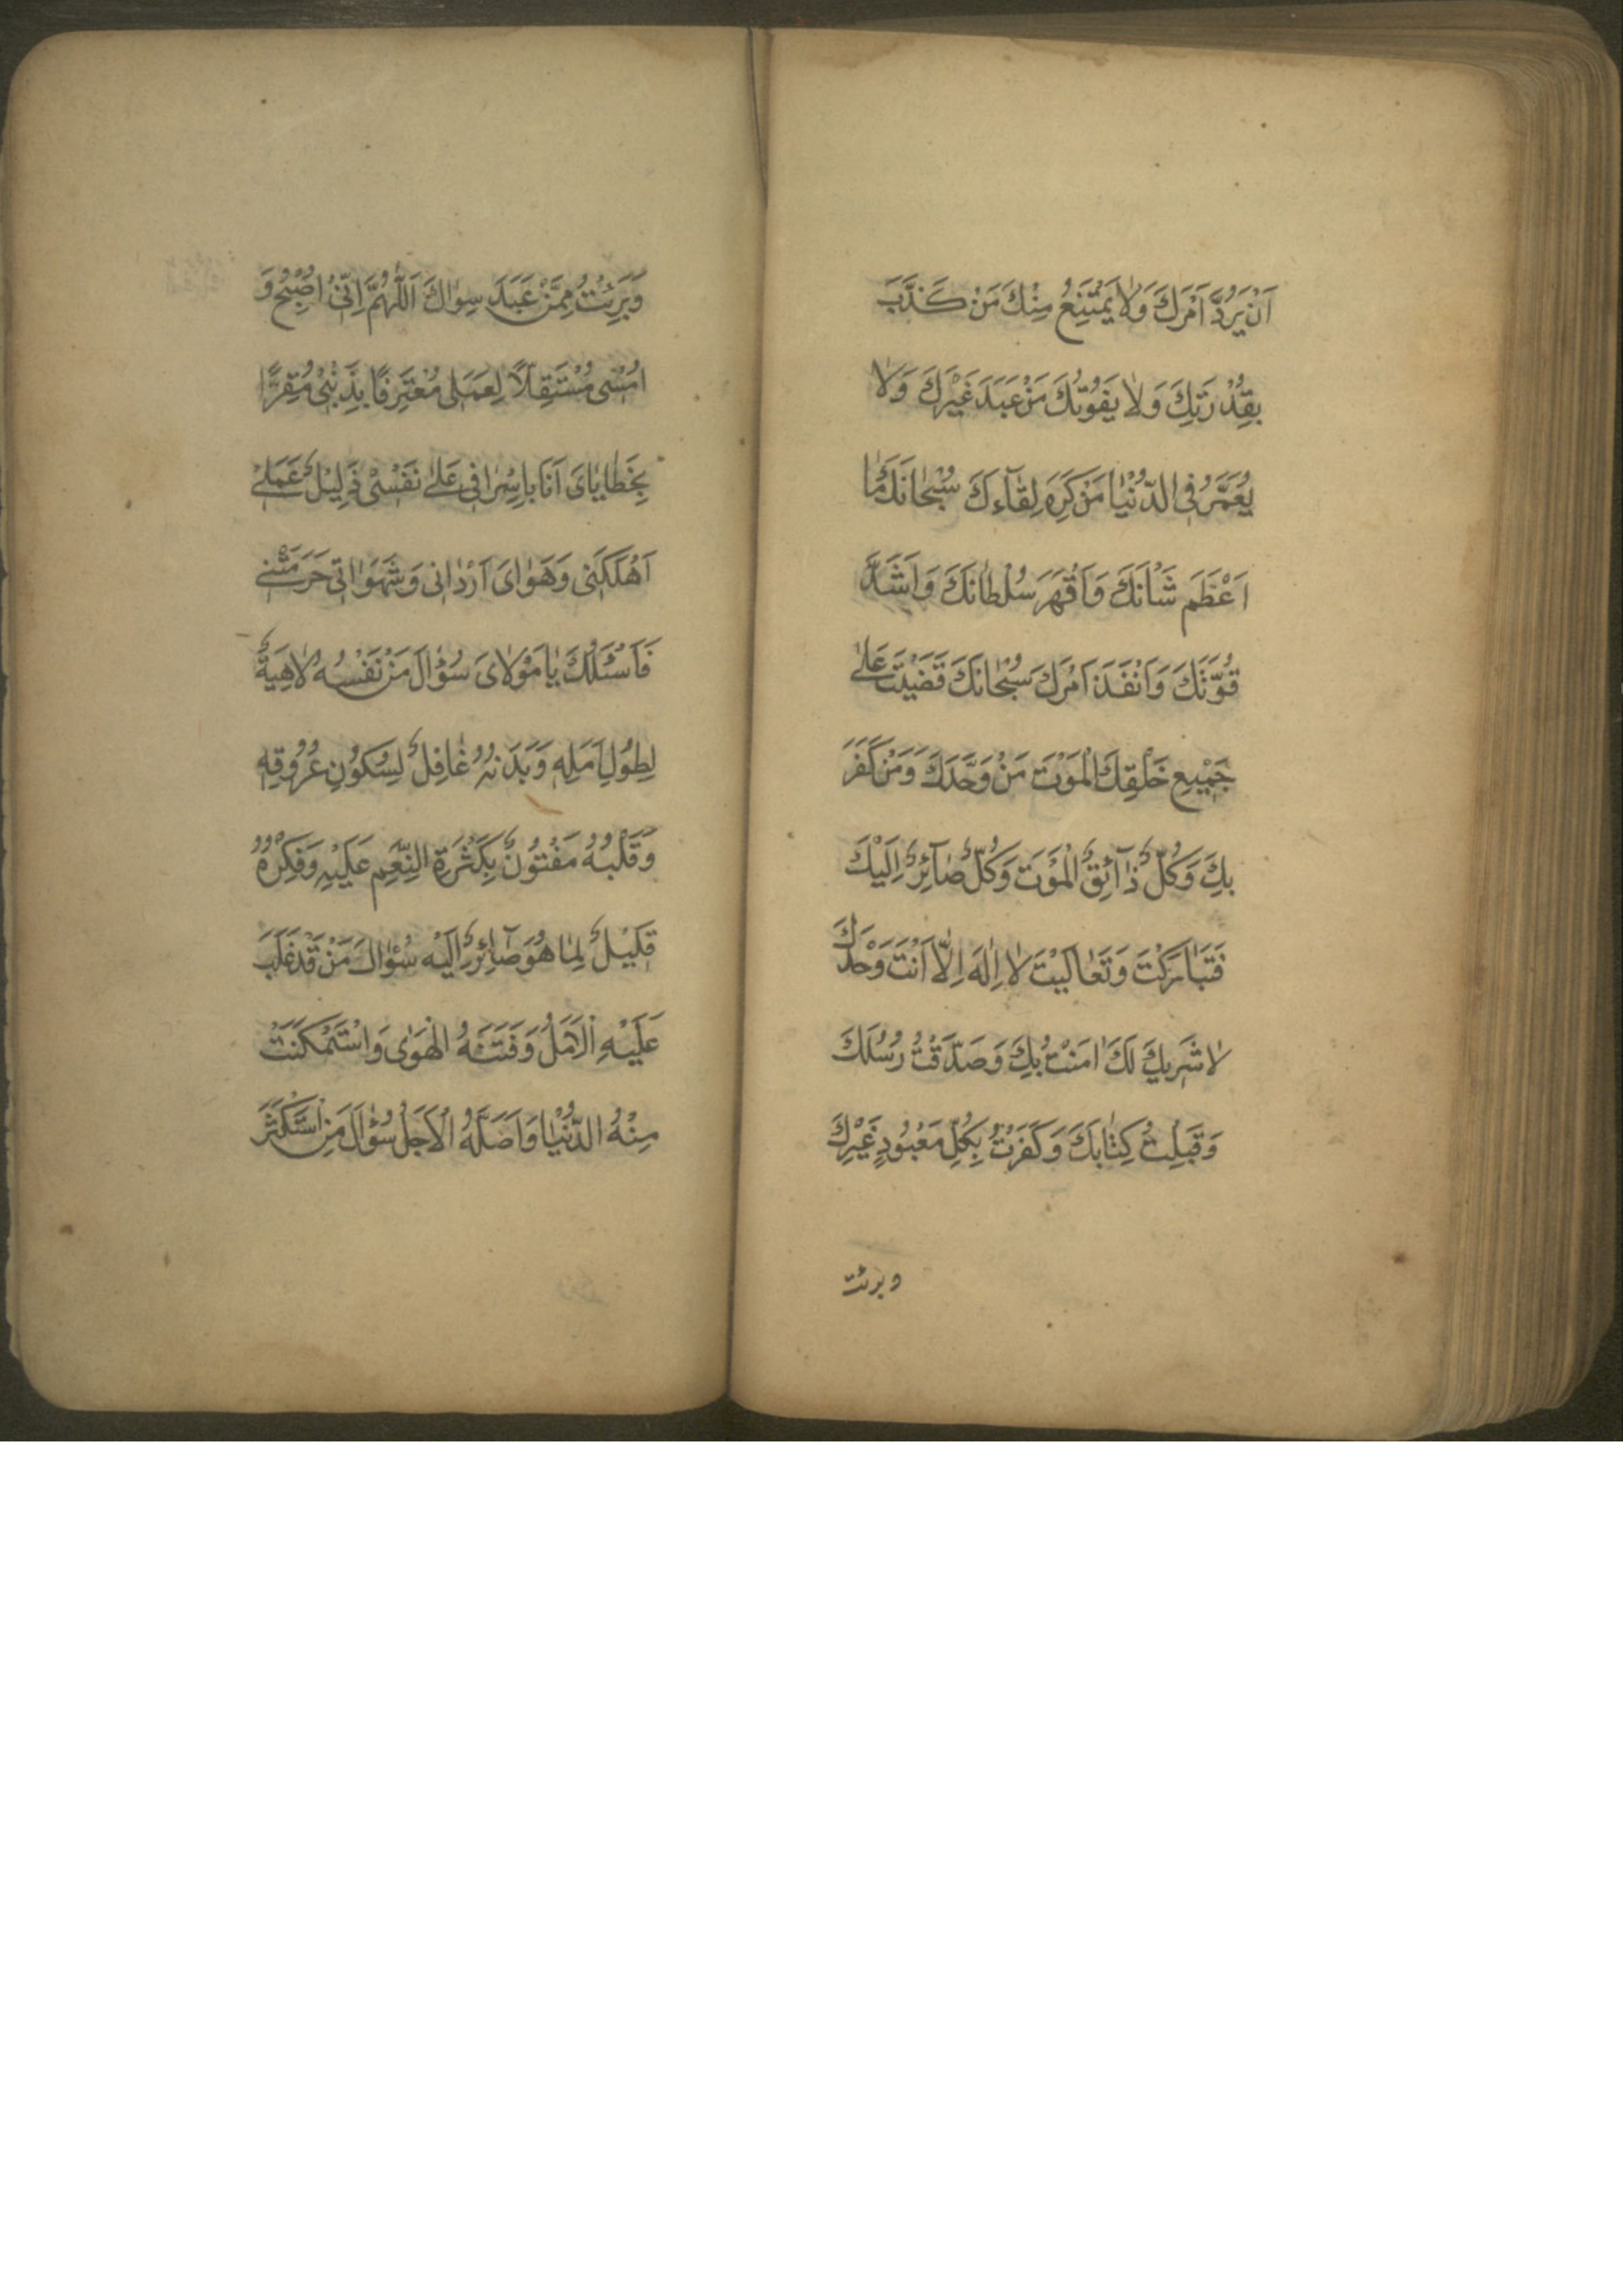 اَنْ يَرُدَّ اَمْرَكَ وَلٰا يَمْتَنِعُ مِنْكَ مَنْ كَذَّبَ
بِقُدْرَتِكَ وَلٰا يَفُوتُكَ مَنْ عَبَدَ غَيْرَكَ وَلٰا
يُعَمَّرُ فِى الدُّنْيٰا مَنْ كَرِهَ لِقٰآءَكَ سُبْحٰانَكَ مٰا
اَعْظَمَ شَاْنَكَ وَاَقْهَرَ سُلْطٰانَكَ وَاَشَدَّ
قُوَّتَكَ وَاَنْفَذَ اَمْرَكَ سُبْحٰانَكَ قَضَيْتَ عَلٰى
جَمِيْعِ خَلْقِكَ الْمَوْتَ مَنْ وَحَّدَكَ وَمَنْ كَفَرَ
بِكَ وَكُلٌّ ذٰآئِقُ الْمَوْتَ وَكُلٌّ صٰآئِرٌ اِلَيْكَ
فَتَبٰارَكْتَ وَتَعٰالَيْتَ لٰا اِلٰهَ اِلّٰا اَنْتَ وَحْدَكَ
لٰا شَرِيكَ لَكَ اٰمَنْتُ بِكَ وَصَدَّقْتُ رُسُلَكَ
وَقَبِلْتُ كِتٰابَكَ وَكَفَرْتُ بِكُلِّ مَعْبُودٍ غَيْرِكَ
وبرئت
وَبَرِئْتُ مِمَّنْ عَبَدَ سِوٰاكَ اَللّٰهُمَّ اِنِّىْ اُصْبِحُ وَ
اُمْسٖى مُسْتَقِلّاً لِعَمَلٖى مُعْتَرِفًا بِذَنْبٖى مُقِرًّا
بِخَطٰايٰاىَ اَنَا بِاِسْرٰافٖى عَلٰى نَفْسٖى ذَلِيْلٌ عَمَلٖى
اَهْلَكَنٖى وَهَوٰاىَ اَرْدٰانٖى وَشَهَوٰاتٖى حَرَمَتْنٖى
فَاَسْئَلُكَ يٰا مَوْلٰاىَ سُؤٰالَ مَنْ نَفْسُهُ لٰاهِيَةٌ
لِطُولِ اَمَلِهٖ وَبَدَنُهُ غٰافِلٌ لِسُكُونِ عُرُوقِهٖ
وَقَلْبُهُ مَفْتُونٌ بِكَثْرَةِ النِّعَمِ عَلَيْهِ وَفِكْرُهُ
قَلِيْلٌ لِمٰا هُوَ صٰآئِرٌ اِلَيْهِ سُؤٰالَ مَنْ قَدْ غَلَبَ
عَلَيْهِ الْاَمَلُ وَفَتَنَهُ الْهَوٰى وَاسْتَمْكَنَتْ
مِنْهُ الدُّنْيٰا وَاَضَلَّهُ الْاَجَلُ سُؤٰالَ مَنِ اسْتَكْثَرَ